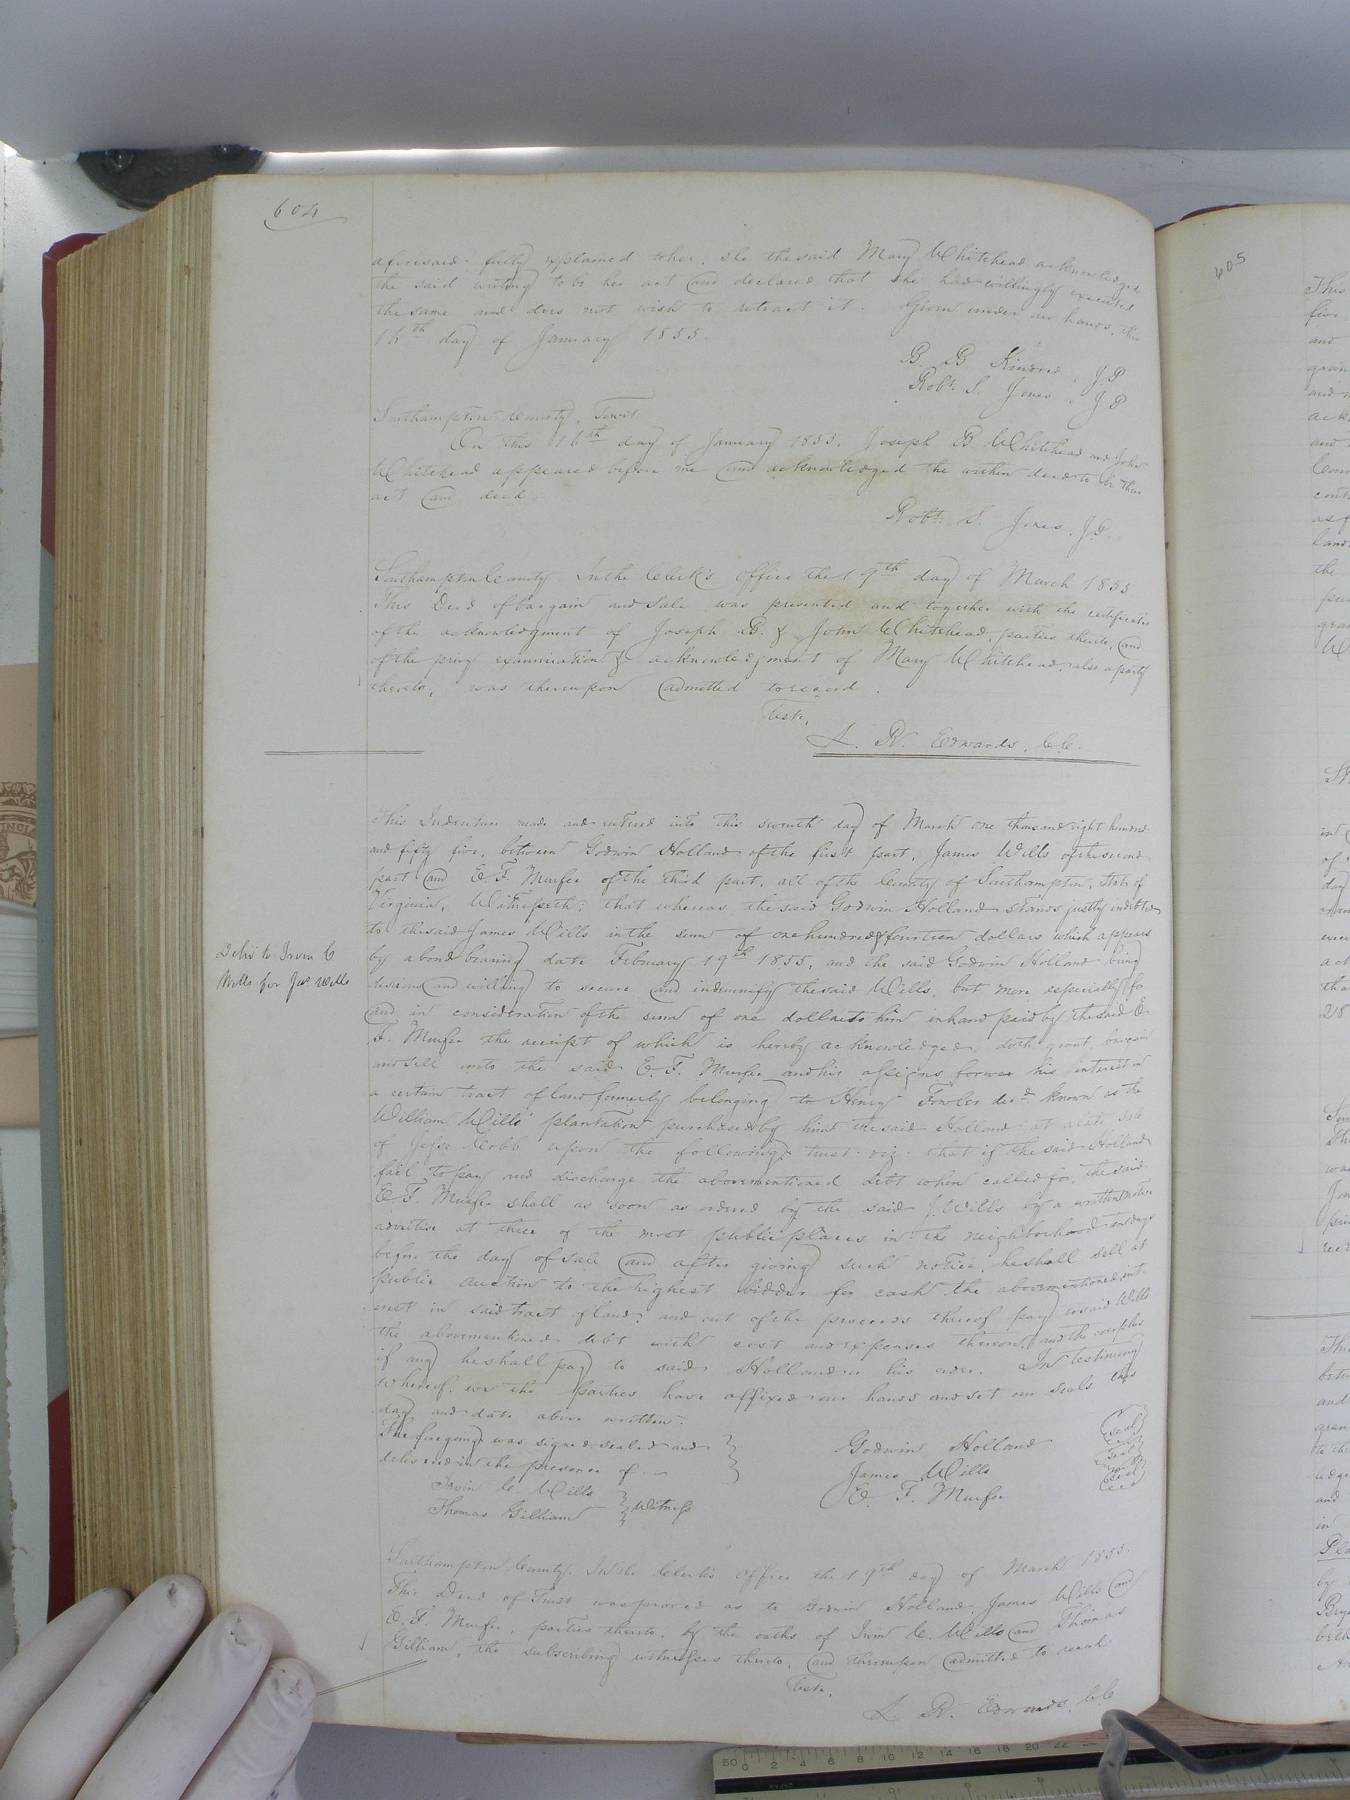 604
aforesaid fully explained to her, she the said Mary Whitehead acknowledged
the said writing to be her act and declared that she had willingly executed
the same and does not wish to retract it. Given under our hands, this
16th day of January 1855.
B. B. Kindred, J.P
Robt. S. Jones, J.P
Southampton County, Towit
On this 16th day of January 1855, Joseph B Whitehead and John
Whitehead appeared before me and acknowledged the within deed to be their
act and deed.
Robt. S. Jones, J.P.
Southampton County. In the Clerk's Office the 19th day of March 1855
This Deed of bargain and Sale was presented and together with the certificates
of the acknowledgment of Joseph B. & John Whitehead, parties thereto, and
of the privy examination & acknowledgment of Mary Whitehead, also a party
thereto, was thereupon admitted to record.
Teste,
L. R. Edwards, C.C.
This Indenture made and entered into this seventh day of March one thousand eight hundred
and fifty five, between Godwin Holland of the first part, James Wills of the second
part and E F. Murfee of the third part, all of the County of Southampton, State of
Virginia, Witnesseth; that whereas the said Godwin Holland stands justly indebted
to the said James Wills in the sum of one hundred & fourteen dollars which appears
Deliv to Irvin C
by a bond bearing date February 19th 1855, and the said Godwin Holland being
Wills for Jas Wills
desirous and willing to secure and indemnify the said Wills, but more especially for
and in consideration of the sum of one dollar to him in hand paid by the said E.
F. Murfee the receipt of which is hereby acknowledged, doth grant, bargain
and sell unto the said E. F. Murfee and his assigns forever his interest in
a certain tract of land formerly belonging to Henry Fowler decd. known as the
William Wills' plantation purchased by him the said Holland at a late sale
of Jesse Cobb upon the following trust: viz: that if the said Holland
fail to pay and discharge the abovementioned debt when called for, the said
E F. Murfee shall as soon as ordered by the said J. Wills by a written notice
advertise at three of the most public places in the neighborhood ten days
before the day of sale and after giving such notice, he shall sell at
public auction to the highest bidder for cash the abovementioned int-
erest in said tract of land; and out of the proceeds thereof pay to said Wills
the abovementioned debt with cost and expenses thereon, and the surplus
if any he shall pay to said Holland or his order. In testimony
whereof, we the parties have affixed our hands and set our seals this
day and date above written.
The foregoing was signed sealed and
delivered in the presence of
Irvin C. Wills
Thomas Gilliam
Witness
Godwin Holland Seal
James Wills Seal
E. F. Murfee Seal
Southampton County. In the Clerk's Office the 19th day of March 1855.
This Deed of Trust was proved as to Godwin Holland, James Wills and
E. F. Murfee, parties thereto, by the oaths of Irvin C. Wills and Thomas
Gilliam, the subscribing witnesses thereto, and thereupon admitted to record.
Teste,
L. R. Edwards, C.C.
605